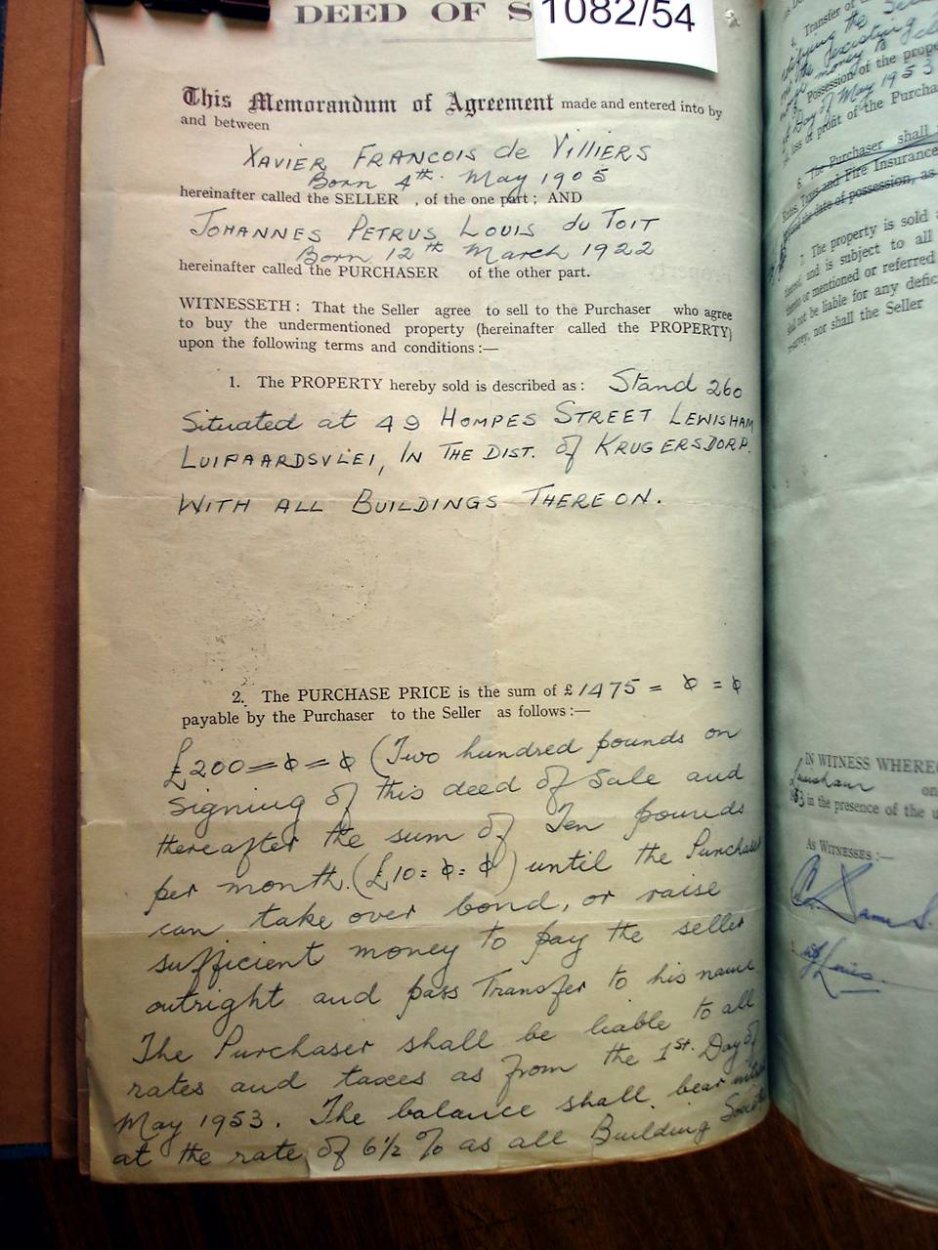 DEED OF S
1082/54
This Memorandum of Agreement made and entered into by
and between
XAVIER FRANCOIS de VILLIERS
Born 4th. May 1905
hereinafter called the SELLER , of the one part ; AND
JOHANNES PETRUS LOUIS du TOIT
Born 12th March 1922
hereinafter called the PURCHASER of the other part.
WITNESSETH : That the Seller agree to sell to the Purchaser who agree
to buy the undermentioned property (hereinafter called the PROPERTY)
upon the following terms and conditions :—
1. The PROPERTY hereby sold is described as : Stand 260
Situated at 49 HOMPES STREET LEWISHAM
LUIPAARDSVLEI, IN THE DIST. of KRUGERSDORP.
WITH ALL BUILDINGS THEREON.
2. The PURCHASE PRICE is the sum of £ 1475 = 0 = 0
payable by the Purchaser to the Seller as follows :—
£200 = 0 = 0 (Two hundred pounds on
signing of this deed of Sale and
thereafter the sum of Ten pounds
per month. (£10 = 0 = 0) until the Purchaser
can take over bond, or raise
sufficient money to pay the seller
outright and pass Transfer to his name
The Purchaser shall be liable to all
rates and taxes as from the 1st. Day of
May 1953. The balance shall bear
at the rate of 6½ % as all Building
4. Transfer of
Possession of the prope
Day of May 1953
loss or profit of the Purcha
6. The Purchaser shall
Rates, Taxes and Fire Insurance
the date of possession, as
7. The property is sold
and is subject to all
or mentioned or referred
not be liable for any defic
survey, nor shall the Seller
IN WITNESS WHEREO
Lewisham on
53 in the presence of the u
As WITNESSES :—